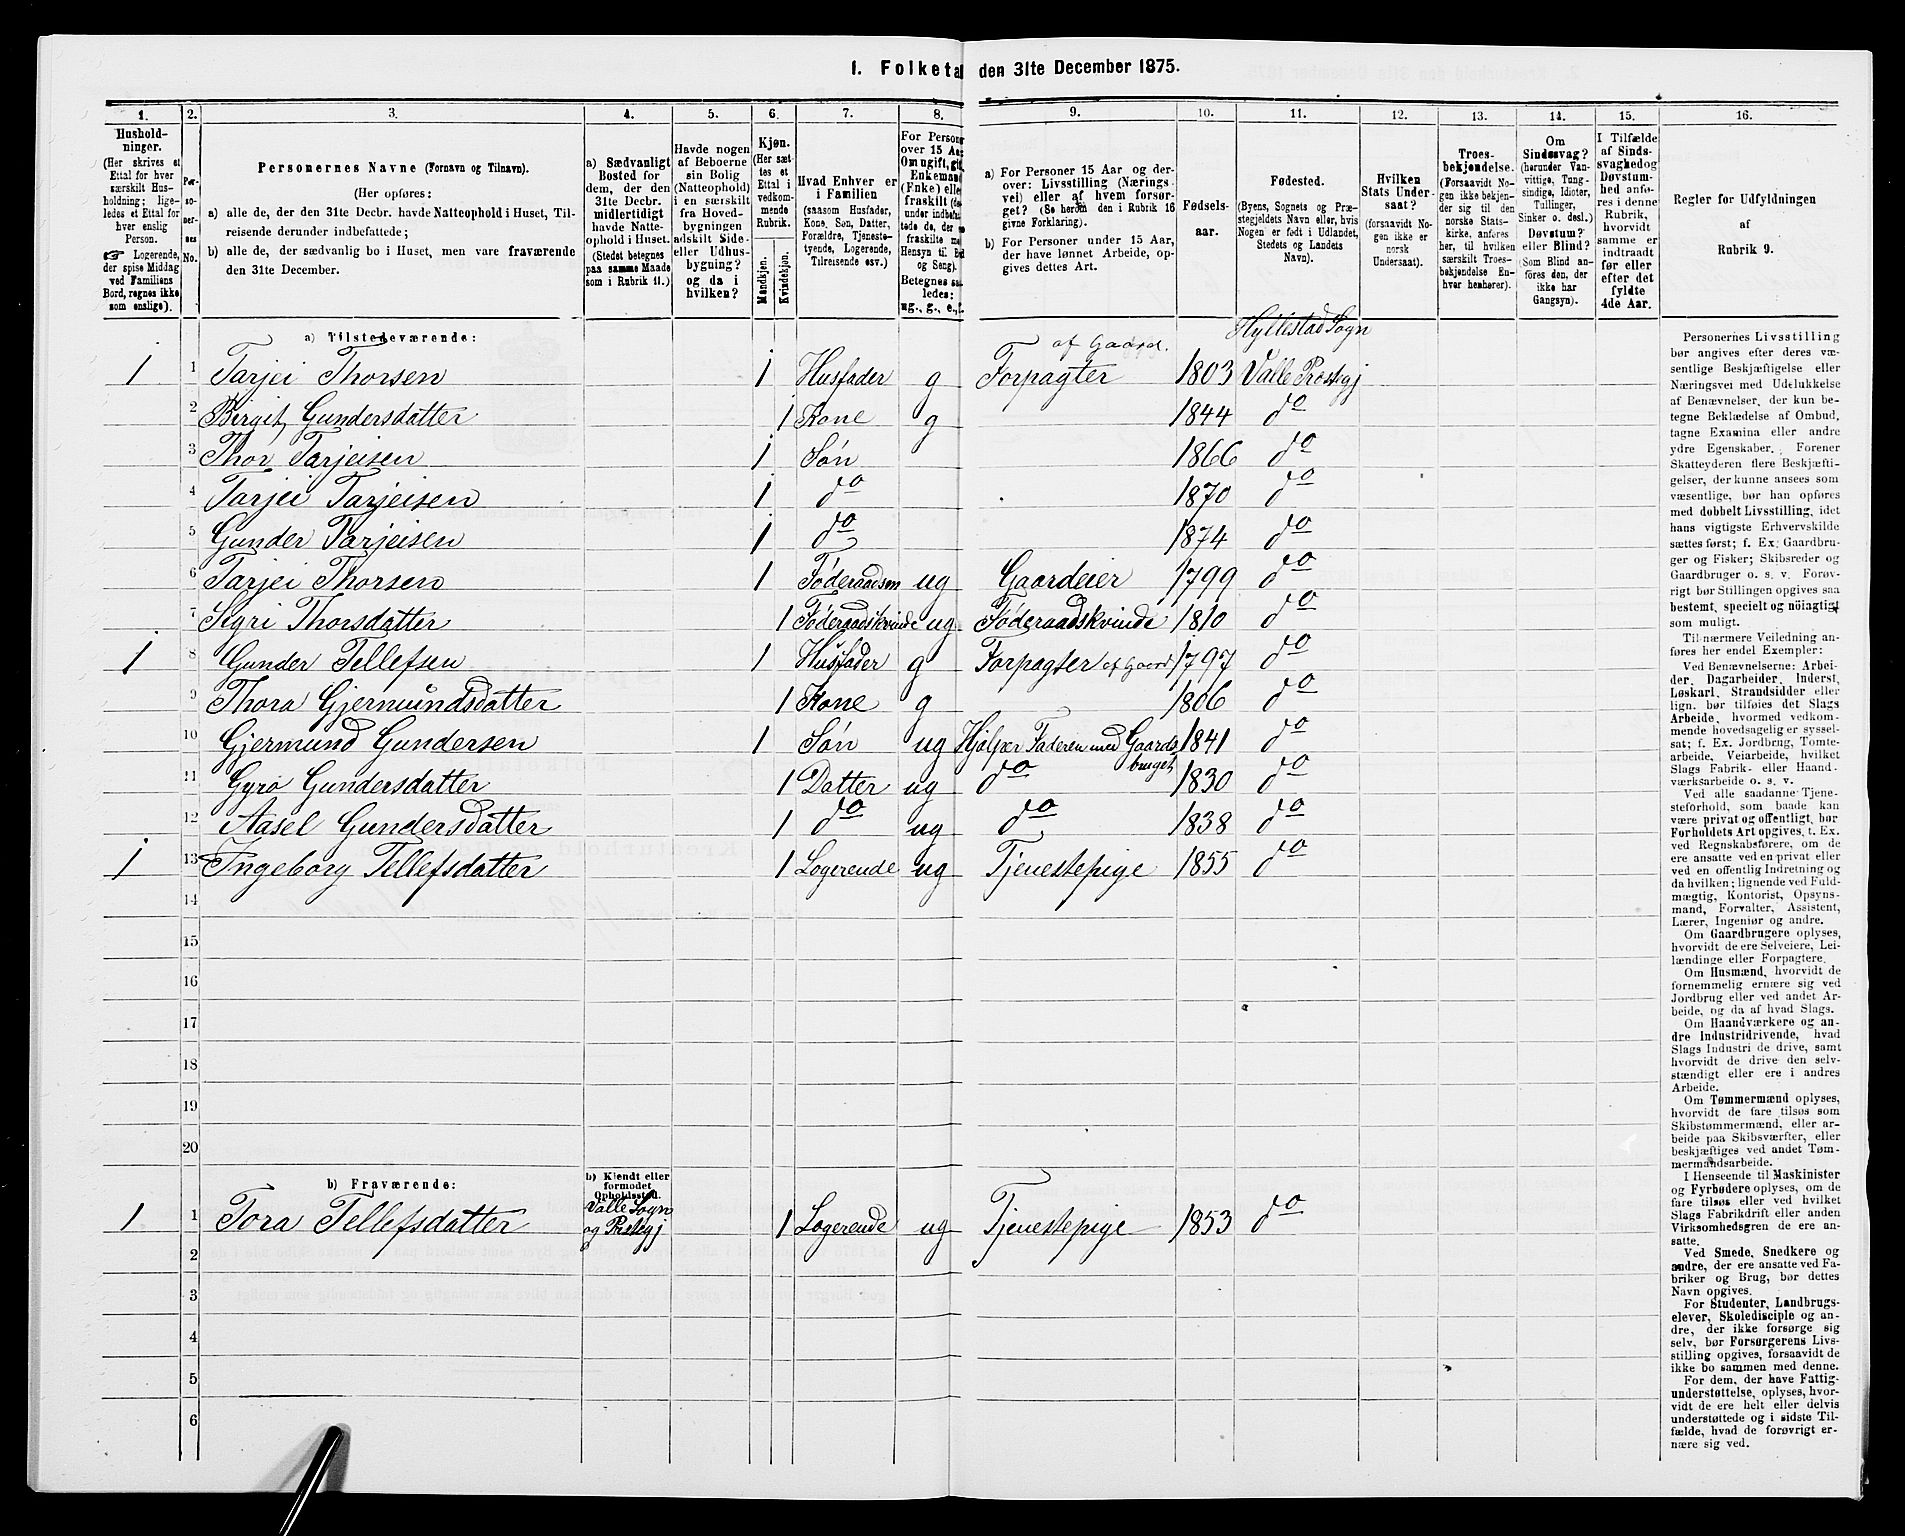 1. Folketal den 31te December 1875.
1. 2. 3. 4. 5. 6. 7. 8. 9. 10. 11. 12. 13. 14. 15. 16.
Hushold-
ninger.
(Her skrives et
Ettal for hver
særskilt Hus-
holdning; lige-
ledes et Ettal for
hver enslig
Person.
☞ Logerende,
der spise Middag
ved Familiens
Bord, regnes ikke
som enslige).
Per-
so-
ner-
nes
No.
Personernes Navne (Fornavn og Tilnavn).
(Her opføres:
a) alle de, der den 31te Decbr. havde Natteophold i Huset, Til-
reisende derunder indbefattede;
b) alle de, der sædvanlig bo i Huset, men vare fraværende
den 31te December.
a) Sædvanligt
Bosted for
dem, der den
31te Decbr.
midlertidigt
havde Natte-
ophold i Huset.
(Stedet betegnes
paa samme Maade
som i Rubrik 11.)
Havde nogen
af Beboerne
sin Bolig
(Natteophold)
i en særskilt
fra Hoved-
bygningen
adskilt Side-
eller Udhus-
bygning?
og da i
hvilken?
Kjøn.
(Her sæt-
tes et
Ettal i
vedkom-
mende
Rubrik.)
Mandkjøn.
Kvindekjøn.
Hvad Enhver er
i Familien
(saasom Husfader,
Kone, Søn, Datter,
Forældre, Tjeneste-
tyende, Logerende,
Tilreisende osv.)
For Person
over 15 Aa
Om ugift, git
Enkemand
(Enke) elle
fraskilt (de
under indbef
tede de, der
fraskilte m
Hensyn til B
og Seng).
Betegnes sa
ledes:
ug., g., e., f.
a) For Personer 15 Aar og der-
over: Livsstilling (Nærings-
vei) eller af hvem forsør-
get? (Se herom den i Rubrik 16
givne Forklaring.)
b) For Personer under 15 Aar,
der have lønnet Arbeide, op-
gives dettes Art.
Fødsels-
aar.
Fødested.
(Byens, Sognets og Præ-
stegjeldets Navn eller, hvis
Nogen er født i Udlandet,
Stedets og Landets
Navn).
Hvilken
Stats Under-
saat?
(forsaavidt No-
gen ikke er
norsk
Undersaat).
Troes-
bekjendelse.
(Forsaavidt No-
gen ikke bekjen-
der sig til den
norske Stats-
kirke, anføres
her, til hvilken
særskilt Troes-
bekjendelse En-
hver henhører).
Om
Sindssvag?
(herunder Van-
vittige, Tung-
sindige, Idioter,
Tullinger,
Sinker o. desl.)
Døvstum?
eller Blind?
(Som Blind an-
føres den, der
ikke har
Gangsyn).
I Tilfælde
af Sinds-
svaghed og
Døvstum-
hed anfø-
res i denne
Rubrik,
hvorvidt
samme er
indtraadt
før eller
efter det
fyldte
4de Aar.
Regler for Udfyldningen
af
Rubrik 9.
a) Tilstedeværende:
Hyllestad Sogn
af Gaard.
1 1 Tarjei Thorsen 1 Husfader g Forpagter 1803 Valle Præstegj
2 Birgit Gundersdatter 1 Kone g 1844 do
3 Thor Tarjeisen 1 Søn 1866 do
4 Tarjei Tarjeisen 1 do 1870 do
5 Gunder Tarjeisen 1 do 1874 do
6 Tarjei Thorsen 1 Föderaadsm ug Gaardeier 1799 do
7 Sigri Thorsdatter 1 Föderaadskvinde ug Føderaadskvinde 1810 do
1 8 Gunder Tellefsen 1 Husfader g Forpagter af Gaard 1797 do
9 Thora Gjermundsdatter 1 Kone g 1806 do
10 Gjermund Gundersen 1 Søn ug Hjælper Faderen med Gaards 1841 do
bruget
11 Gyro Gundersdatter 1 Datter ug do 1830 do
12 Aasel Gundersdatter 1 do ug do 1838 do
1 13 Ingeborg Tellefsdatter 1 Logerende ug Tjenestepige 1855 do
14
15
16
17
18
19
20
b) Fraværende:
b) Kjendt eller
formodet
Opholdssted.
Valle Sogn
1 1 Tora Tellefsdatter og Præstegj 1 Logerende ug Tjenestepige 1853 do
2
3
4
5
6
Personernes Livsstilling
bør angives efter deres væ-
sentlige Beskjæftigelse eller
Næringsvei med Udelukkelse
af Benævnelser, der kun be-
tegne Beklædelse af Ombud,
tagne Examina eller andre
ydre Egenskaber. Forener
Skatteyderen flere Beskjæfti-
gelser, der kunne ansees som
væsentlige, bør han opføres
med dobbelt Livsstilling, idet
hans vigtigste Erhvervskilde
sættes først; f. Ex. Gaardbru-
ger og Fisker; Skibsreder og
Gaardbruger o. s. v. Forøv-
rigt bør Stillingen opgives saa
bestemt, specielt og nöiagtigt
som muligt.
Til nærmere Veiledning an-
føres her endel Exempler:
Ved Benævnelserne: Arbei-
der, Dagarbeider, Inderst,
Løskarl, Strandsidder eller
lign. bør tilføies det Slags
Arbeide, hvormed vedkom-
mende hovedsagelig er syssel-
sat; f. Ex. Jordbrug, Tomte-
arbeide, Veiarbeide, hvilket
Slags Fabrik- eller Haand-
værksarbeide o. s. v.
Ved alle saadanne Tjene-
steforhold, som baade kan
være privat og offentligt, bør
Forholdets Art opgives, t. Ex.
ved Regnskabsførere, om de
ere ansatte ved en privat eller
ved en offentlig Indretning og
da hvilken; lignende ved Fuld-
mægtig, Kontorist, Opsyns-
mand, Forvalter, Assistent,
Lærer, Ingeniør og andre.
Om Gaardbrugere oplyses,
hvorvidt de ere Selveiere, Lei-
lændinge eller Forpagtere.
Om Husmænd, hvorvidt de
fornemmelig ernære sig ved
Jordbrug eller ved andet Ar-
beide, og da af hvad Slags.
Om Haandværkere og an-
dre Industridrivende, hvad
Slags Industri de drive, samt
hvorvidt de drive den selv-
stændigt eller ere i andres
Arbeide.
Om Tømmermænd oplyses,
hvorvidt de fare tilsøs som
Skibstømmermænd, eller ar-
beide paa Skibsværfter, eller
beskjæftiges ved andet Tøm-
mermandsarbeide.
I Henseende til Maskinister
og Fyrbødere oplyses, om de
fare tilsøs eller ved hvilket
Slags Fabrikdrift eller anden
Virksomhedsgren de ere an-
satte.
Ved Smede, Snedkere og
andre, der ere ansatte ved Fa-
briker og Brug, bør dettes
Navn opgives.
For Studenter, Landbrugs-
elever, Skoledisciple og an-
dre, der ikke forsørge sig
selv, bør Forsørgerens Livs-
stilling opgives, forsaavidt de
ikke bo sammen med denne.
For dem, der have Fattig-
understøttelse, oplyses, hvor-
vidt de ere helt eller delvis
understøttede og i sidste Til-
fælde, hvad de forøvrigt er-
nære sig ved.